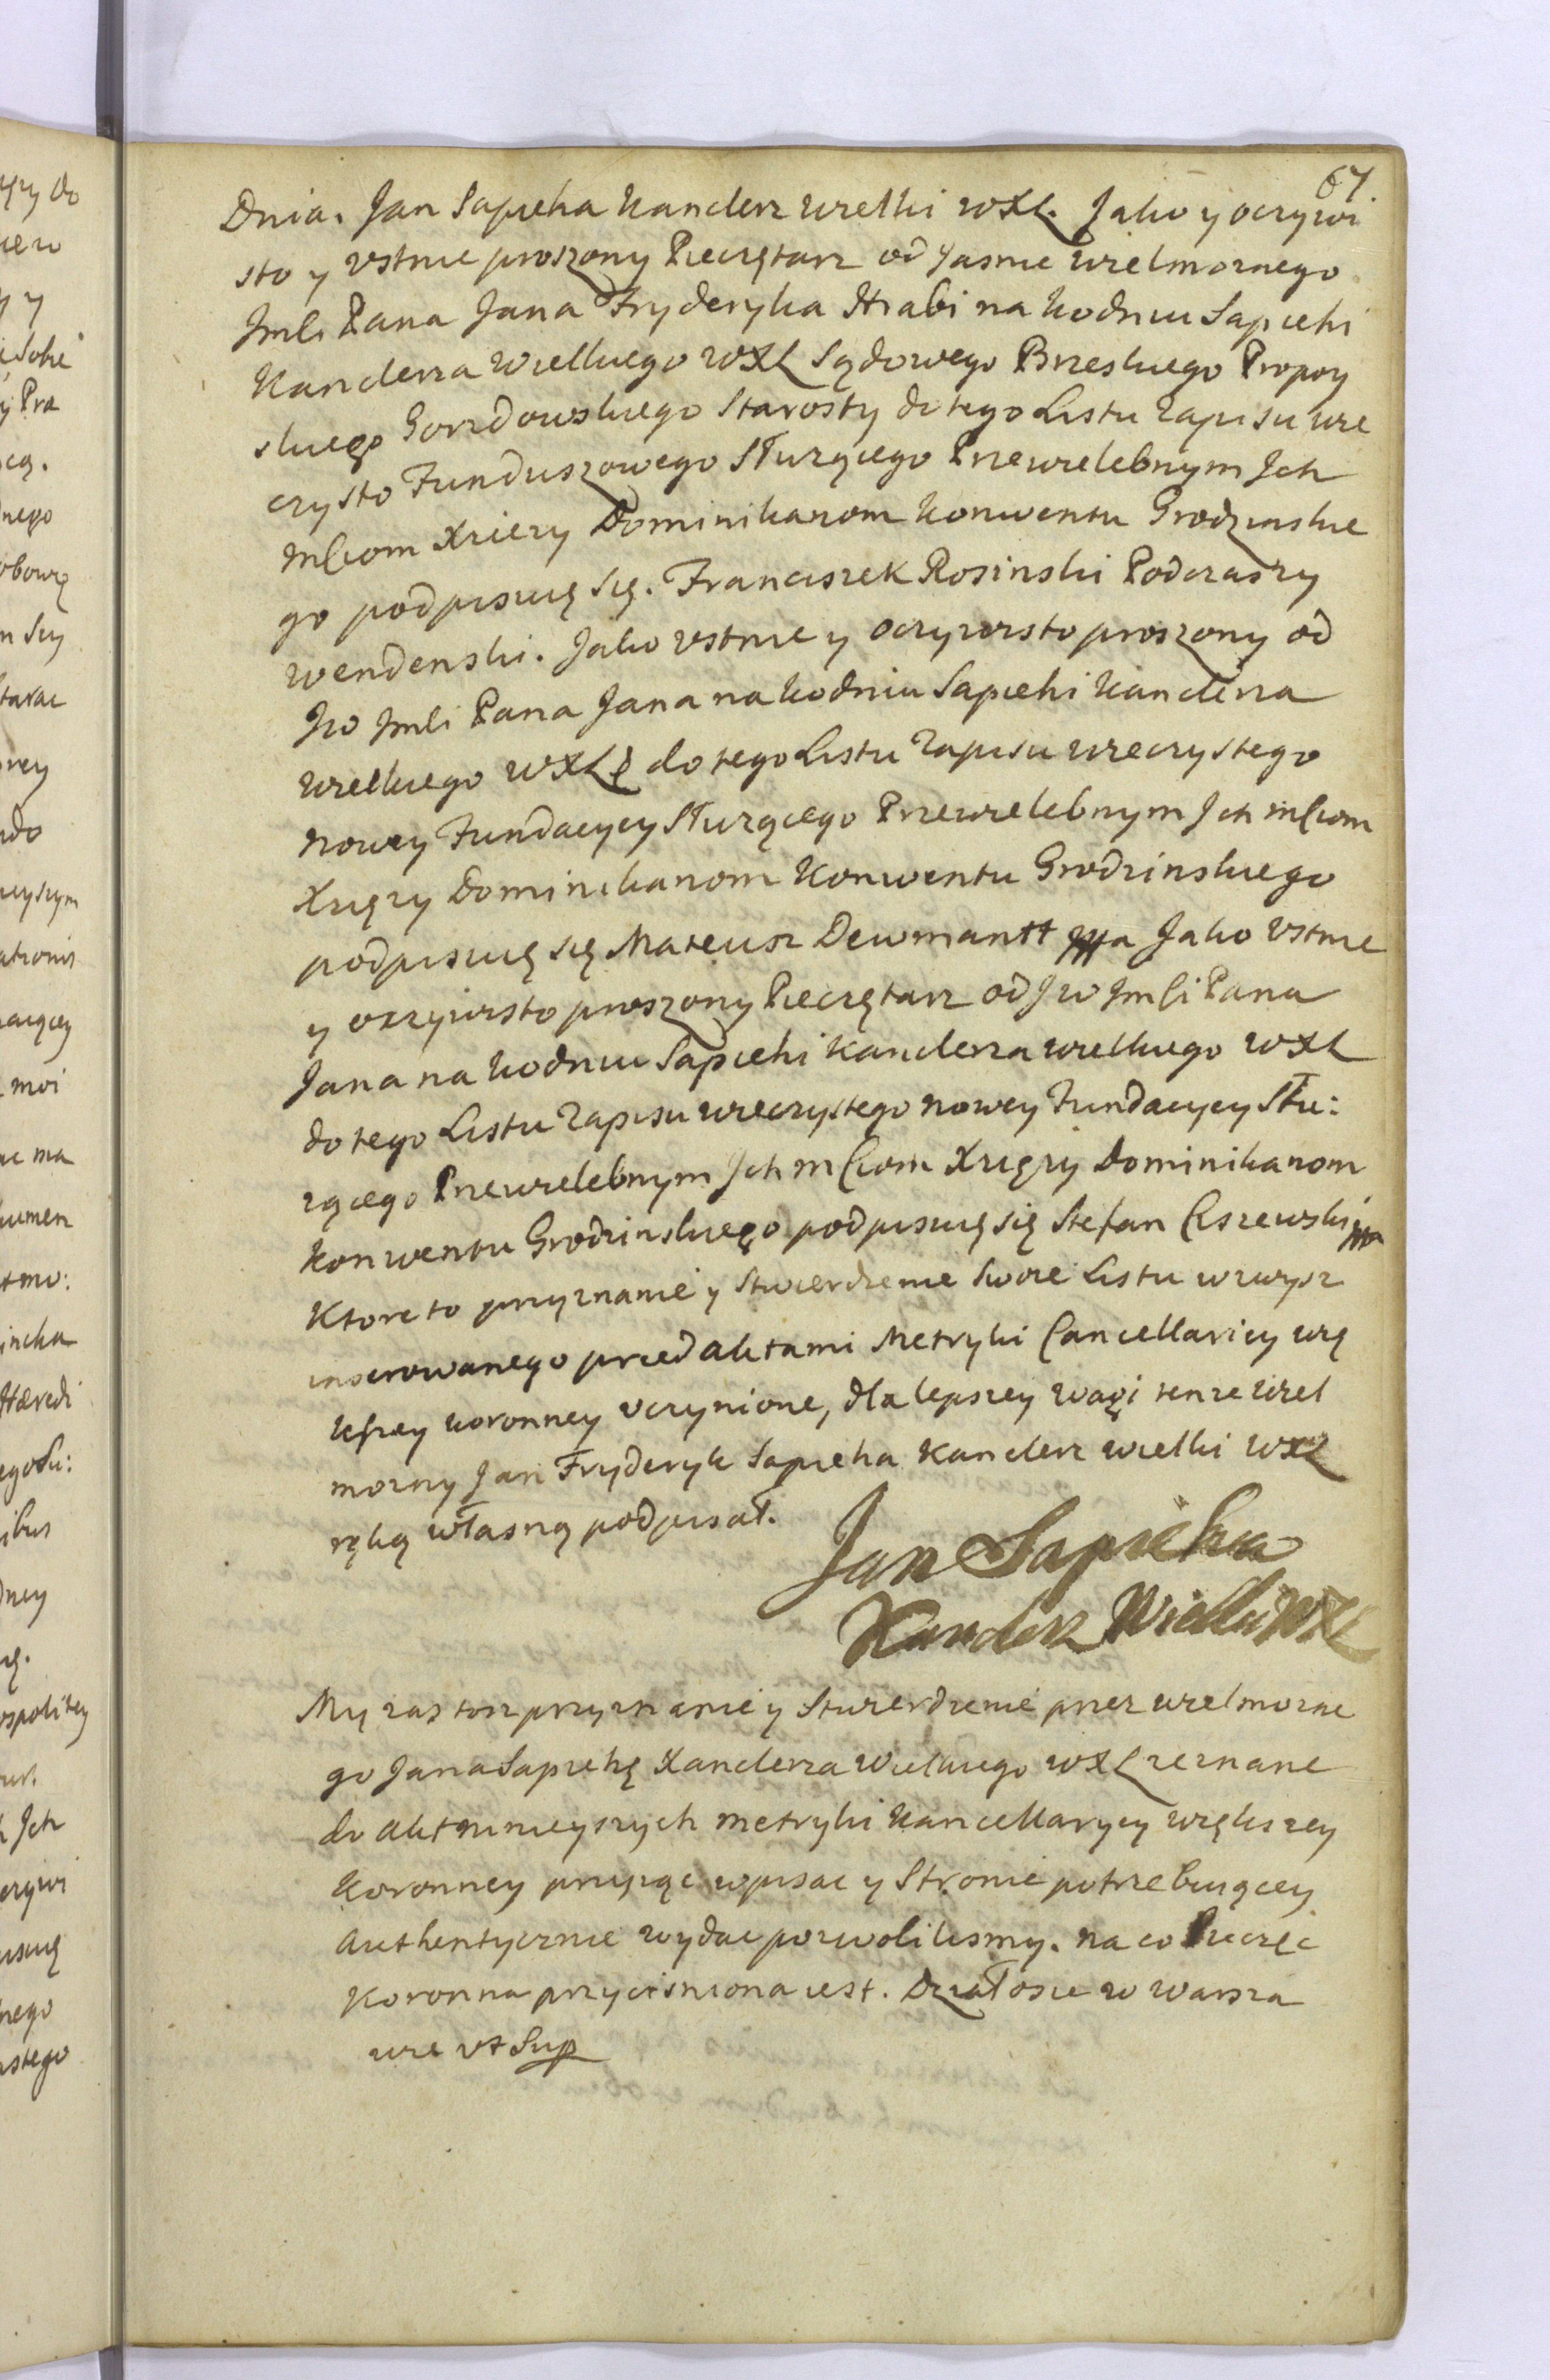 67.
Dnia. Jan Sapieha Kanclerz wielki WXL. Jako y oczywi
sto y vstnie proszony Pieczętarz od Jasnie wielmoznego
Jmsci Pana Jana Fryderyka Hrabi na Kodniu Sapiehi
Kanclerza wielkiego WXL Sądowego Brzeskiego Propoy
skiego Gorzdowskiego Starosty do tego Listu Zapisu wie
czysto Funduszowego Słuzącego Przewielebnym Ich
msciom Xsiezy Dominikanom Konwentu Grodzinskie
go podpisuię się. Franciszek Rosinski Podczaszy
wendenski. Jako vstnie y oczywisto proszony od
Jw Jmsci Pana Jana na Kodniu Sapiehi Kanclerza
wielkiego WXL do tego Listu Zapisu wieczystego
nowey Fundacyey Słuzącego Przewielebnym Ich msciom
Xsięzy Dominikanom Konwentu Grodzinskiego
podpisuię się Mateusz Dewmantt mpa Jako vstnie
y oczywisto proszony Pieczętarz od Jw Jmsci Pana
Jana na Kodniu Sapiehi Kanclerza wielkiego WXL
do tego Listu Zapisu wieczystego nowey Fundacyey Słu:
zącego Przewielebnym Ich msciom Xsięzy Dominikanom
Konwentu Grodzinskiego podpisuię się Stefan Ciszewski mpa
Ktore to przyznanie y Stwierdzenie Swoie Listu wzwysz
inserowanego przed aktami Metryki Cancellariey wię
kszey koronney vczynione, dla lepszey wagi tenze wiel
mozny Jan Fryderyk Sapieha Kanclerz wielki WXL
ręką własną podpisał.
Jan Sapieha
Kanclerz Wielki WXL
My zas tosz przyznanie y Stwierdzenie przez wielmozne
go Jana Sapiehę Kanclerza Wielkiego WXL zeznane
do akt ninieyszych metryki Kancellaryey większey
Koronney przyiąc wpisac y Stronie potrzebuiącey
authentycznie wydac pozwolilismy. na co Pieczęc
Koronna przycisniona iest. Działosie w Warsza
wie vt Sup